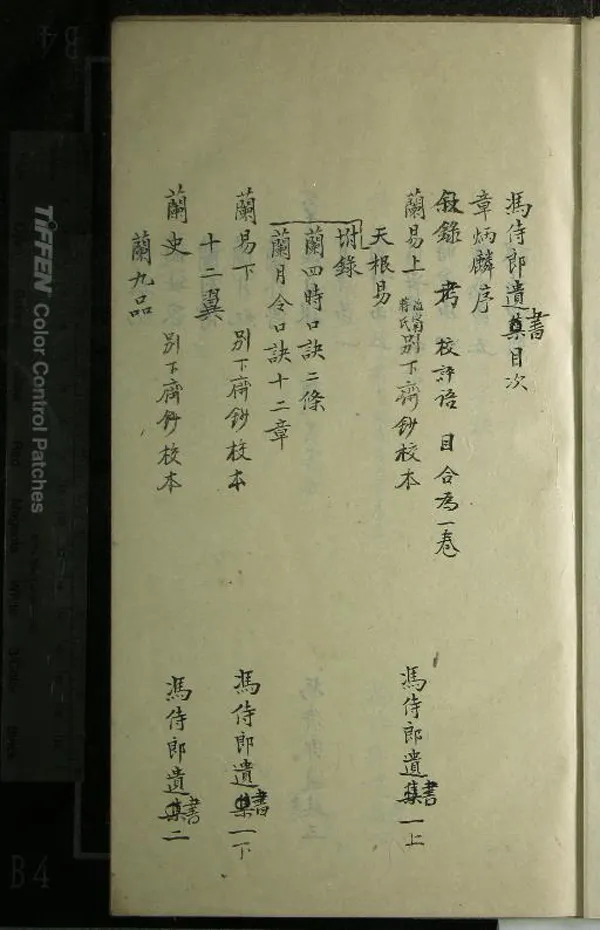 馮侍郎遺書目次
章炳麟序
敘錄 考 校評語 目 合為一卷
蘭易上 海甯蔣氏別下齋鈔校本 馮侍郎遺書一上
天根易
坿錄
蘭四時口訣二條
蘭月令口訣十二章
蘭易下 別下齋鈔校本 馮侍郎遺書一下
十二翼
蘭史 別下齋鈔校本 馮侍郎遺書二
蘭九品
TIFFEN Color Control Patches
B4
B4